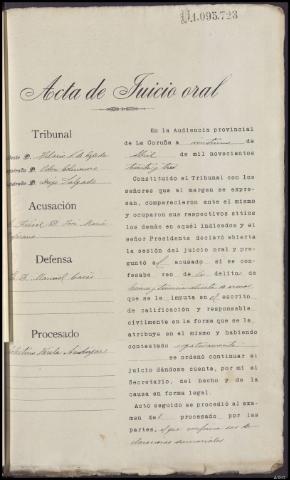 U.1.095.723
Acta de Juicio oral
Tribunal
D. Hilario
D.
D. Salgado
Acusación
D. José María
Defensa
D. Manuel
Procesado
En la Audiencia provincial
de La Coruña a de
Abril de mil novecientos
treinta y tres
Constituido el Tribunal con los
señores que al margen se expre-
san, comparecieron ante el mismo
y ocuparon sus respectivos sitios
los demás en aquél indicados y el
señor Presidente declaró abierta
la sesión del juicio oral y pre-
guntó al acusado si se con-
fesaba reo de delito de
y tenencia ilícita de armas
que se le imputa en el escrito
de calificación y responsable
civilmente en la forma que se le
atribuye en el mismo y habiendo
contestado negativamente
se ordenó continuar el
juicio dándose cuenta, por mi el
Secretario, del hecho y de la
causa en forma legal.
Acto seguido se procedió al exa-
men del procesado por las
partes, y que confirma sus de-
claraciones sumariales